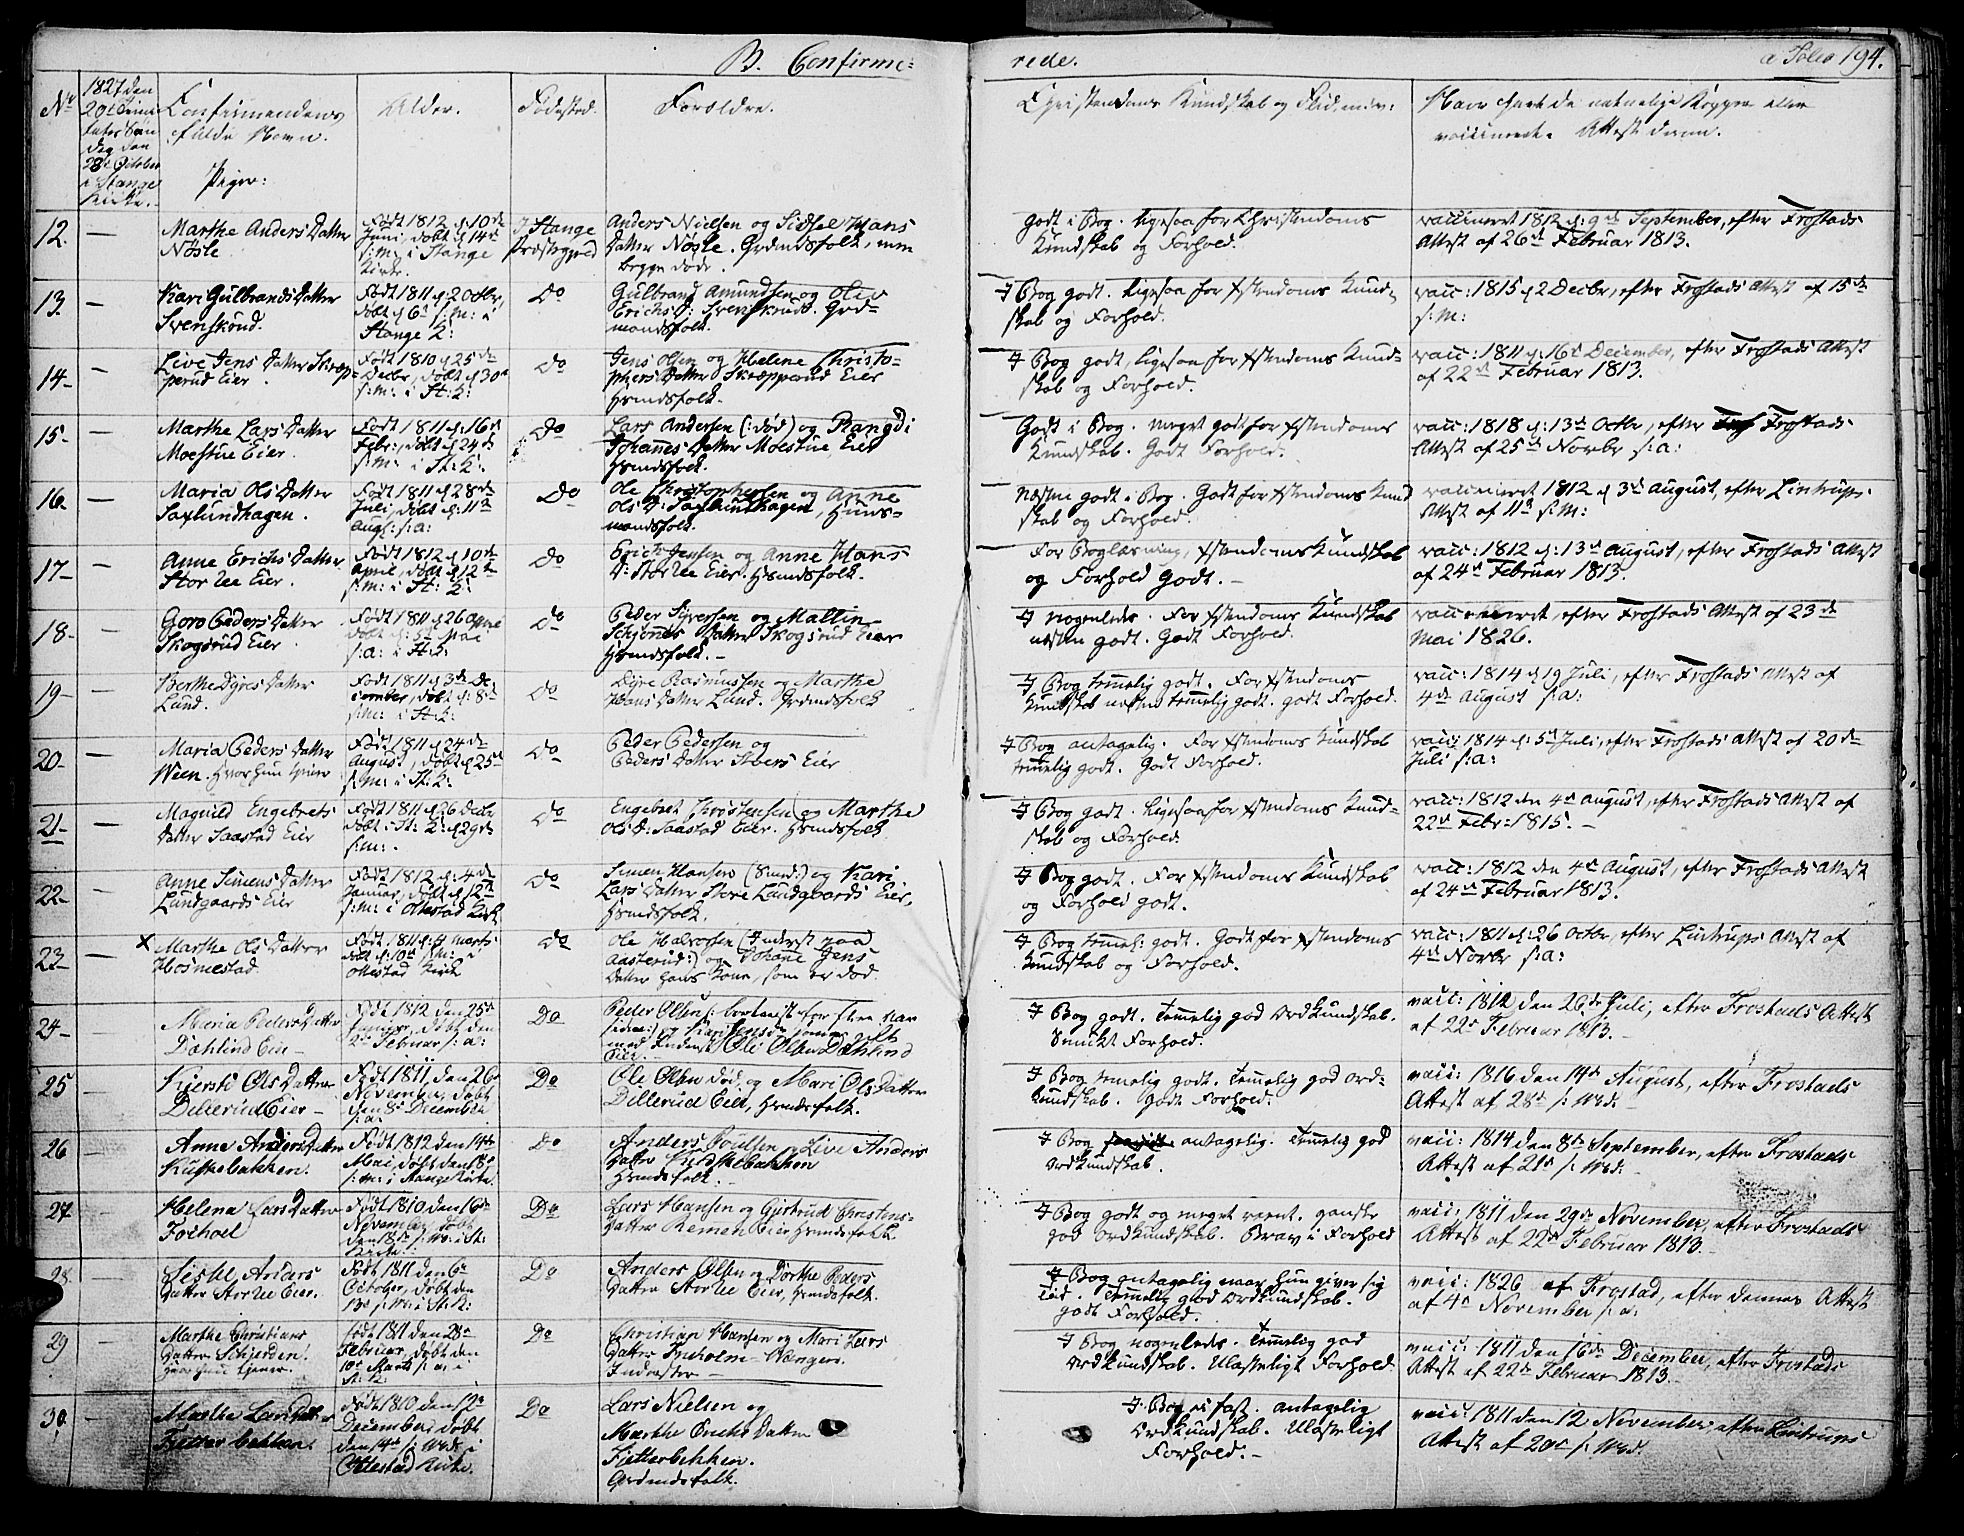 B. Confirme=
rede.
a Folio 194.
No
1827 den
20de Trini
tatis Søn
dag den
28de October
i Stange
Kirke.
Confirmandens
fulde Navn.
Piger:
Alder.
Fødested.
Forældre.
Christendoms Kundskab og
Have havt de naturlige Kopper eller
vaccinerede. Attest derom.
12. — Marthe Anders Datter
Nøsle
Født 1812 d. 10de
Juni, døbt d. 14de
s: m: i Stange
Kirke.
I Stange
Præstegjeld
Anders Nielsen og Sidsel Hans
Datter Nøsle. Grdmdsfolk, nu
begge døde.
Godt i Bog. Ligesaa for Christendoms
Kundskab og Forhold.
vaccineret 1812 d. 9de September, efter Frostads
Attest af 26de Februar 1813.
13. — Kari Gulbrands Datter
Svenskrud.
Født 1811 d. 2 Octbr,
døbt d. 6te s: m: i
Stange K:
Do
Gulbrand Amundsen og Oliv
Erichs D: Svenskrud. Grd=
mandsfolk.
I Bog godt. Ligesaa for Xstendoms Kund=
skab og Forhold.
vacc: 1815 d. 2 Decbr, efter Frostads Attest af 15de
s: m:
14. — Live Jens Datter Skræp=
perud Eier.
Født 1810 d. 25de
Decbr, døbt d. 30te
s: m: i St: K:
Do
Jens Olsen og Helene Christo=
phers Datter Skræpperud Eier
Hsmdsfolk.
I Bog godt, ligesaa for Xstendoms Kund=
skab og Forhold.
vacc: 1811 d. 16de December, efter Frostads Attest
af 22de Februar 1813.
15. — Marthe Lars Datter
Moestue Eier.
Født 1811 d. 16de
Febr:, døbt d. 24de
s: m: i St: K:
Do
Lars Andersen (: død) og Rangdi
Johannes Datter Moestue Eier
Hsmdsfolk.
Godt i Bog. Meget godt for Xstendoms
Kundskab. Godt Forhold.
vacc: 1818 d. 13de Octbr, efter Frostads
Attest af 25de Novbr s: a:
16. — Maria Ols Datter
Saxlundhagen.
Født 1811 d. 28de
Juli, døbt d. 11te
Aug: s: a:
Do
Ole Christophersen og Anne
Ols D: Saxlundhagen, Huus=
mandsfolk.
Næsten godt i Bog. Godt for Xstendoms Kund
skab og Forhold.
vaccineret 1812 d. 3de August, efter Lintrups
Attest af 11te s: m:
17. — Anne Erichs Datter
Storlee Eier.
Født 1812 d. 10de
April, døbt d. 12te
s: m: i St: K:
Do
Erich Jensen og Anne Hans
D: Storlee Eier. Hsmdsfolk.
For Boglæsning, Xstendoms Kundskab
og Forhold Godt. —
vacc: 1812 d. 13de August, efter Frostads Attest
af 24de Februar 1813.
18. Goro Peders Datter
Skogsrud Eier.
Født 1811 d. 26 April
døbt d. 5te Mai
s: a: i St: K:
Do
Peder Syversen og Mallin
Datter Skogsrud Eier
Hsmdsfolk. —
I Bog nogenledes. For Xstendoms Kundskab
næsten godt. Godt Forhold.
vaccineret, efter Frostads Attest af 23de
Mai 1826.
19. — Berthe Dyres Datter
Lund.
Født 1811 d. 3de De
cember, døbt d. 8de
s: m: i St: K:
Do
Dyre Rasmussen og Marthe
Hans Datter Lund. Grdmdsfolk
I Bog temmelig godt. For Xstendoms
Kundskab næsten temmelig godt. Godt Forhold.
vacc: 1814 d. 19 Juli, efter Frostads Attest af
4de August s: a:
20. — Maria Peders Datter
Ween. Hvor hun tjener
Født 1811 d. 24de
August, døbt d. 25de
s: m: i St: K:
Do
Peder Pedersen og
Peders Datter Eier
I Bog antagelig. For Xstendoms Kundskab
temmelig godt. Godt Forhold.
vacc: 1814 d. 5te Juli, efter Frostads Attest af 20de
Juli s: a:
21. — Magnild Engebrets
Datter Saastad Eier
Født 1811 d. 26 Decbr
døbt i St: K: d. 29de
s: m:
Do
Engebret Thorstensen og Marthe
Ols D: Saastad Eier. Hsmdsfolk
I Bog godt. Ligesaa for Xstendoms Kund=
skab og Forhold.
vacc: 1812 den 4de August, efter Frostads Attest af
22de Febr: 1815. —
22. — Anne Simens Datter
Lundgaards Eier
Født 1812 d. 4de
Januar, døbt d. 12te
s: m: i Ottestad Kirke
Do
Simen Hansen (Smed:) og Kari
Lars Datter Store Lundgaards Eier,
Hsmdsfolk.
I Bog godt. For Xstendoms Kundskab
og Forhold godt.
vacc: 1812 den 4de August, efter Frostads Attest
af 24de Februar 1813.
23. — x Marthe Ols Datter
Hosmestad
Født 1811 d. 4 Marts
døbt d. 10de s: m: i
Ottestad Kirke
Do
Ole Halvorsen (Inderst paa
Aasterud:) og Johane Jens
Datter hans Kone, som er død.
I Bog temmel: godt. Godt for Xstendoms
Kundskab og Forhold.
vacc: 1811 d. 26 Octbr, efter Lintrups Attest af
4de Novbr s: a:
24. — Maria Peders Datter
Dahlind Eier —
Født 1812 den 25de
Januar, døbt den
2den Februar s: a:
Do
Peder Olsen (: bortreist for flere Aar
siden:) og Kari
med Inderst Ole Olsen Dahlind
Eier. —
I Bog godt. Temmelig god Ordkundskab.
Smukt Forhold.
vacc: 1812 den 26de Juli, efter Frostads Attest
af 22de Februar 1813. —
25 — Kjersti Ols Datter
Dillerud Eier —
Født 1811, den 26de
November, døbt
den 8de December
s: a:
Do
Ole Olsen død, og Mari Ols Datter
Dillerud Eier, Hsmdsfolk.
I Bog temelig godt. Temelig god Ord=
kundskab. Godt Forhold.
vacc: 1816 den 14de August, efter Frostads
Attest af 28de s: Md: —
26 — Anne Anders Datter
Kuskebakken.
Født 1812 den 14de
Mai, døbt den 18de
s: m: i Stange Kirke.
Do
Anders Poulsen og Live Anders
Datter Kuskebakken
Hsmdsfolk. —
I Bog antagelig. Temmelig god
Ordkundskab.
vacc: 1814 den 8de September, efter Frostads
Attest af 21de s: Md: —
27 — Helena Lars Datter
Født 1810 den 16de
November, døbt
den 18de s: Md: i St:
Kirke.
Do
Lars Hansen og Gjertrud Christens=
datter Remen Eier, Hsmdsfolk.
I Bog godt og meget rært. Ganske
god Ordkundskab. Brav i Forhold
vacc: 1811 den 29de November, efter Frostads
Attest af 22de Februar 1813. —
28 — Siske Anders
Datter Storlee Eier.
Født 1811 den 6te
October, døbt den
13de s: Md: i St: K:
Do
Anders Olsen og Dorthe Peders
Datter Storlee Eier, Hsmdsfolk.
I Bog antagelig naar hun giver sig
Tid. Temelig god Ordkundskab.
godt Forhold.
vacc: 1826 af Frostad, efter dennes Attest
af 4de November s: a.
29 — Marthe Christians
Datter
hvor hun tjener.
Født 1811 den 28de
Februar, døbt den
10de Marts s: a: i
St: K:
Do
Christian Hansen og Mari Lars
Datter
Inderster —
I Bog nogenledes. Temelig god
Ordkundskab. Ulasteligt Forhold.
vacc: 1811 den 16de December, efter Frostads
Attest af 22de Februar 1813. —
30. — Marthe Lars Datter
Fætterbekken.
Født 1810 den 12te
December, døbt
den 14de s: Md: i
Ottestad Kirke.
Do
Lars Nielsen og
Marthe Erichs Datter
Fætterbekken.
Grdmdsfolk.
I Bog ei fast. antagelig
Ordkundskab. Ulasteligt
Forhold. —
vacc: 1811 den 12 November, efter Lintrups
Attest af 20de s: Md: